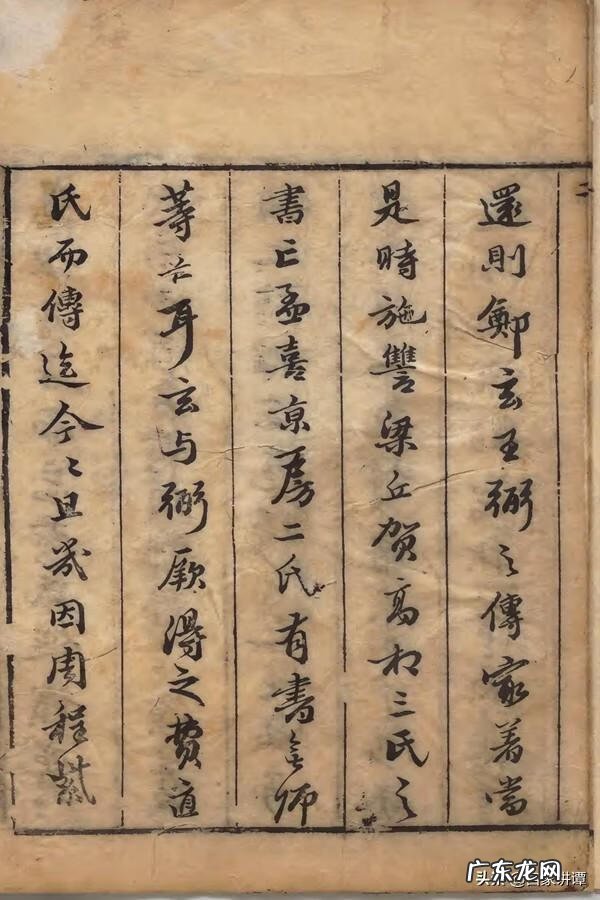 還則鄭玄王弼之傳家著當
是時施讐梁丘賀高相三氏之
書亡孟喜京房二氏有書無師
等亡耳玄与弼厥得之費直
氏而傳迄今〻且幾因周程
头条 @百家讲谭
广东龙网